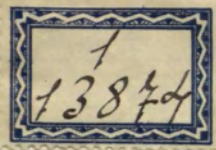 1
13874